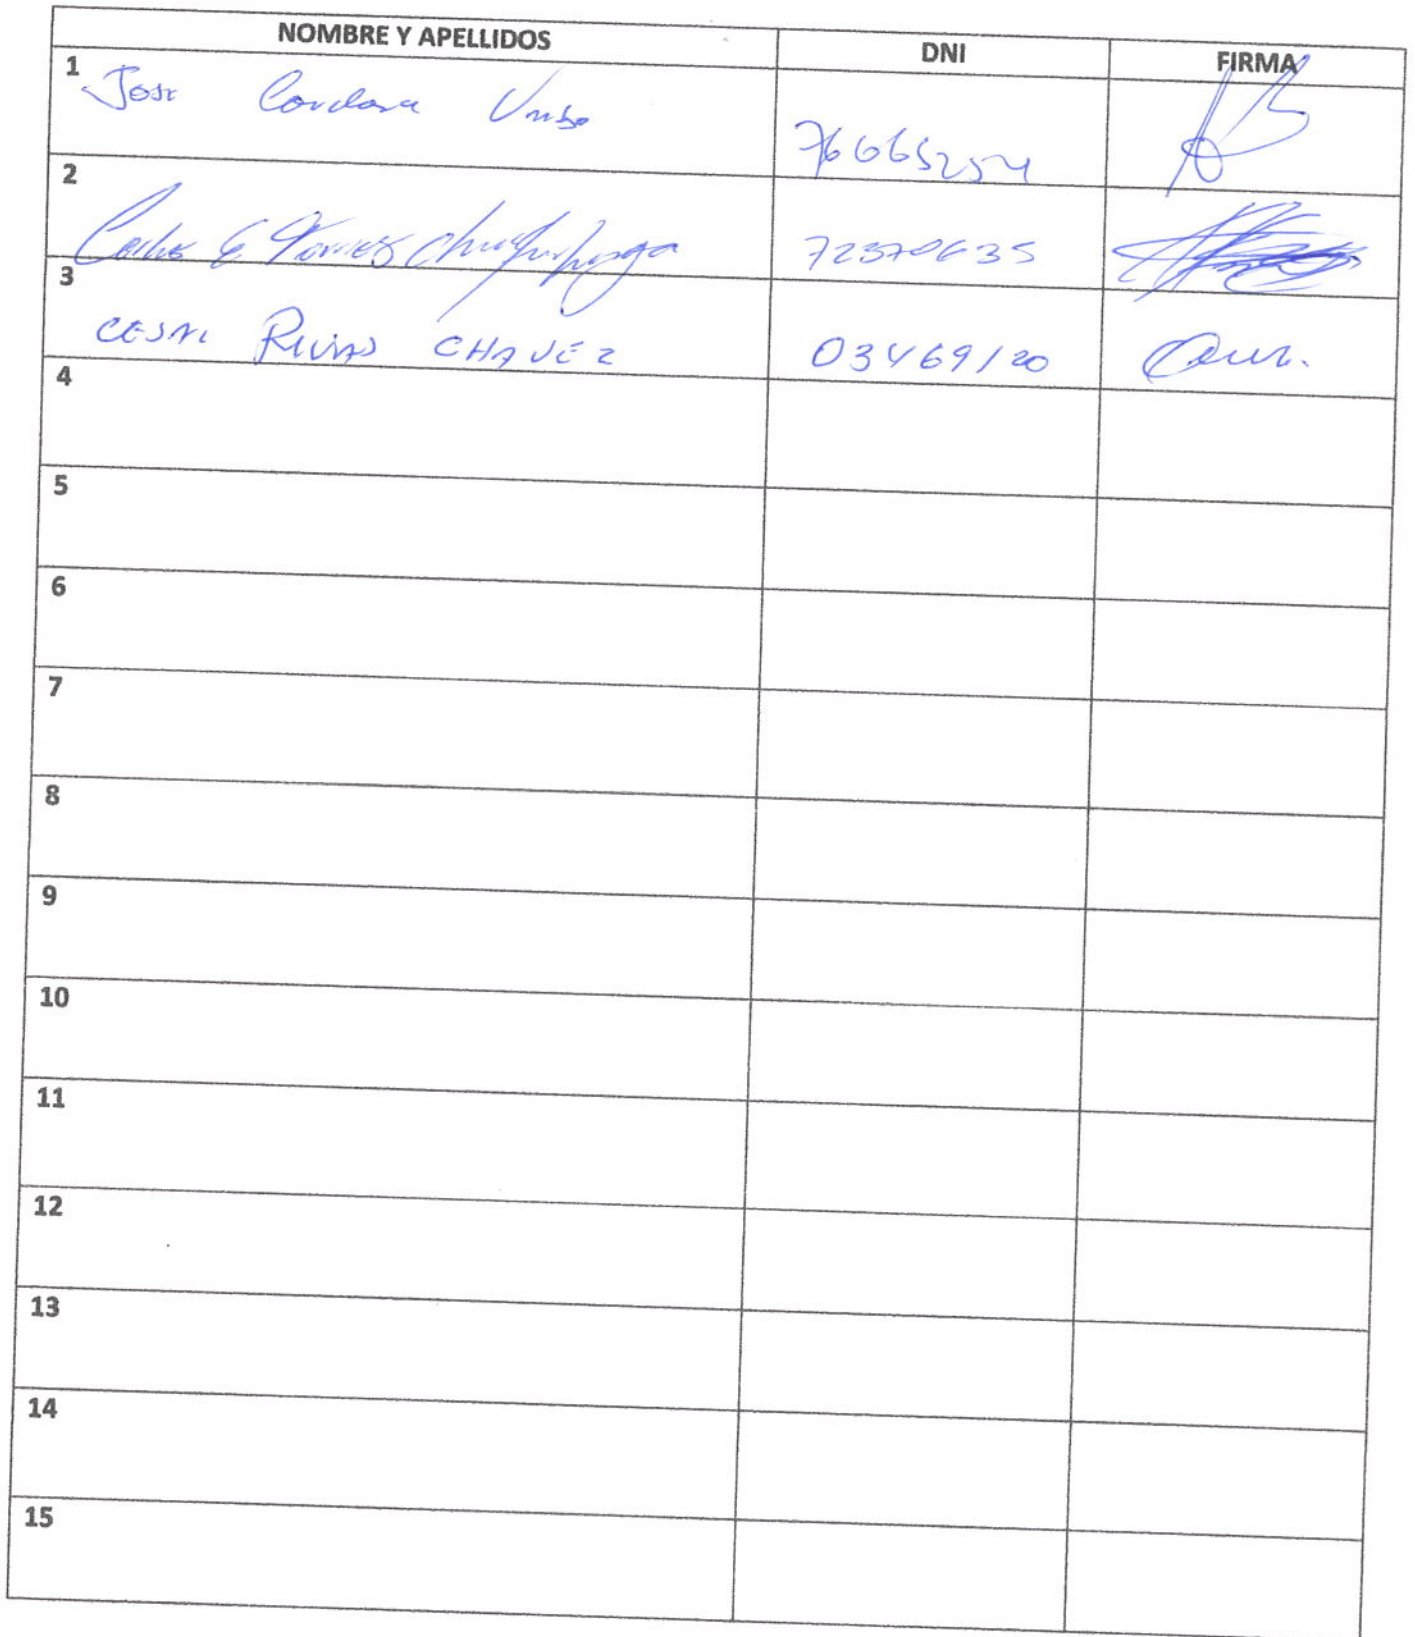 NOMBRE Y APELLIDOS DNI FIRMA
1 Jose Cordova 76665254
2 Carlos E. Torres 72370635
3 CESAR RIVAS CHAVEZ 03469120
4
5
6
7
8
9
10
11
12
13
14
15